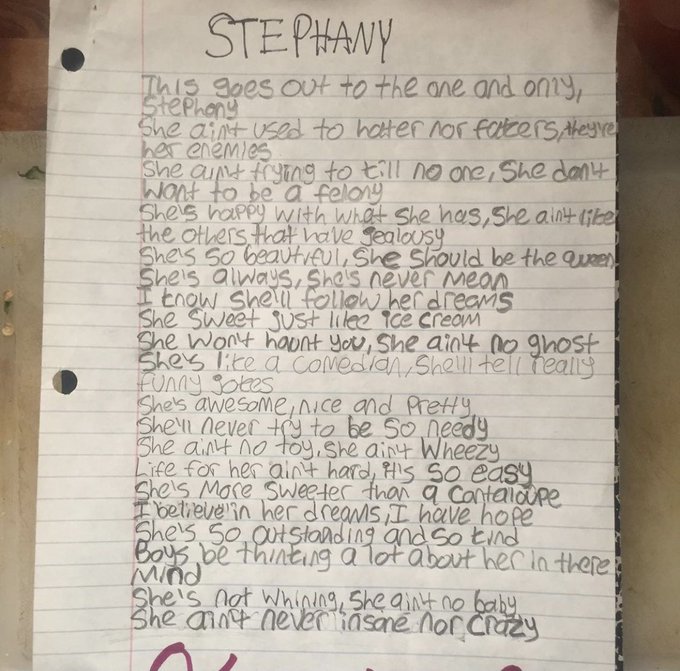 STEPHANY
This goes out to the one and only,
Stephany
She ain't used to hater nor fakers, they're
her enemies
She ain't trying to kill no one, She don't
want to be a felony
She's happy with what she has, She ain't like
the others that have jealousy
She's so beautiful, She should be the queen
She's always, She's never mean
I know She'll follow her dreams
She sweet just like ice cream
She won't haunt you, She ain't no ghost
She's like a comedian, She'll tell really
funny jokes
She's awesome, nice and Pretty
She'll never try to be so needy
She ain't no toy, she ain't Wheezy
Life for her ain't hard, it's so easy
She's More sweeter than a cantaloupe
I believe in her dreams, I have hope
She's so outstanding and so kind
Boys be thinking a lot about her in there
Mind
She's not whining, She ain't no baby
She ain't never insane nor crazy